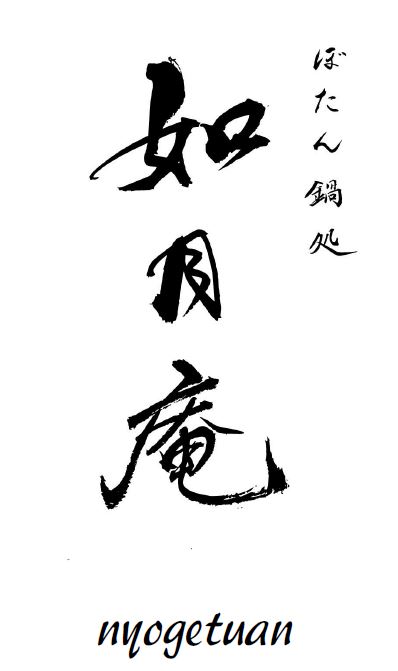 ぼたん鍋処
如月庵
nyogetuan